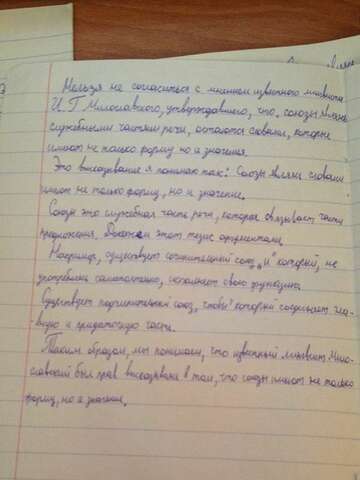 Нельзя не согласиться с мнением известного лингвиста
И.Г Милославского, утверждавшего, что "союзы являясь
служебными частями речи, остаются словами, которые
имеют не только форму но и значения.
Это высказывание я понимаю так: Союзы являясь словами
имеют не только форму, но и значение.
Союзы это служебная часть речи, которая связывает части
предложения. Докажем этот тезис аргументами.
Например, существует сочинительный союз "и" который, не
употребляясь самостоятельно, исполняет свою функцию.
Существует подчинительный союз "чтобы" который соединяет гла-
вную и придаточную части.
Таким образом, мы понимаем, что известный лингвист Мило-
славский был прав высказывая в том, что союзы имеют не только
форму, но и значение.